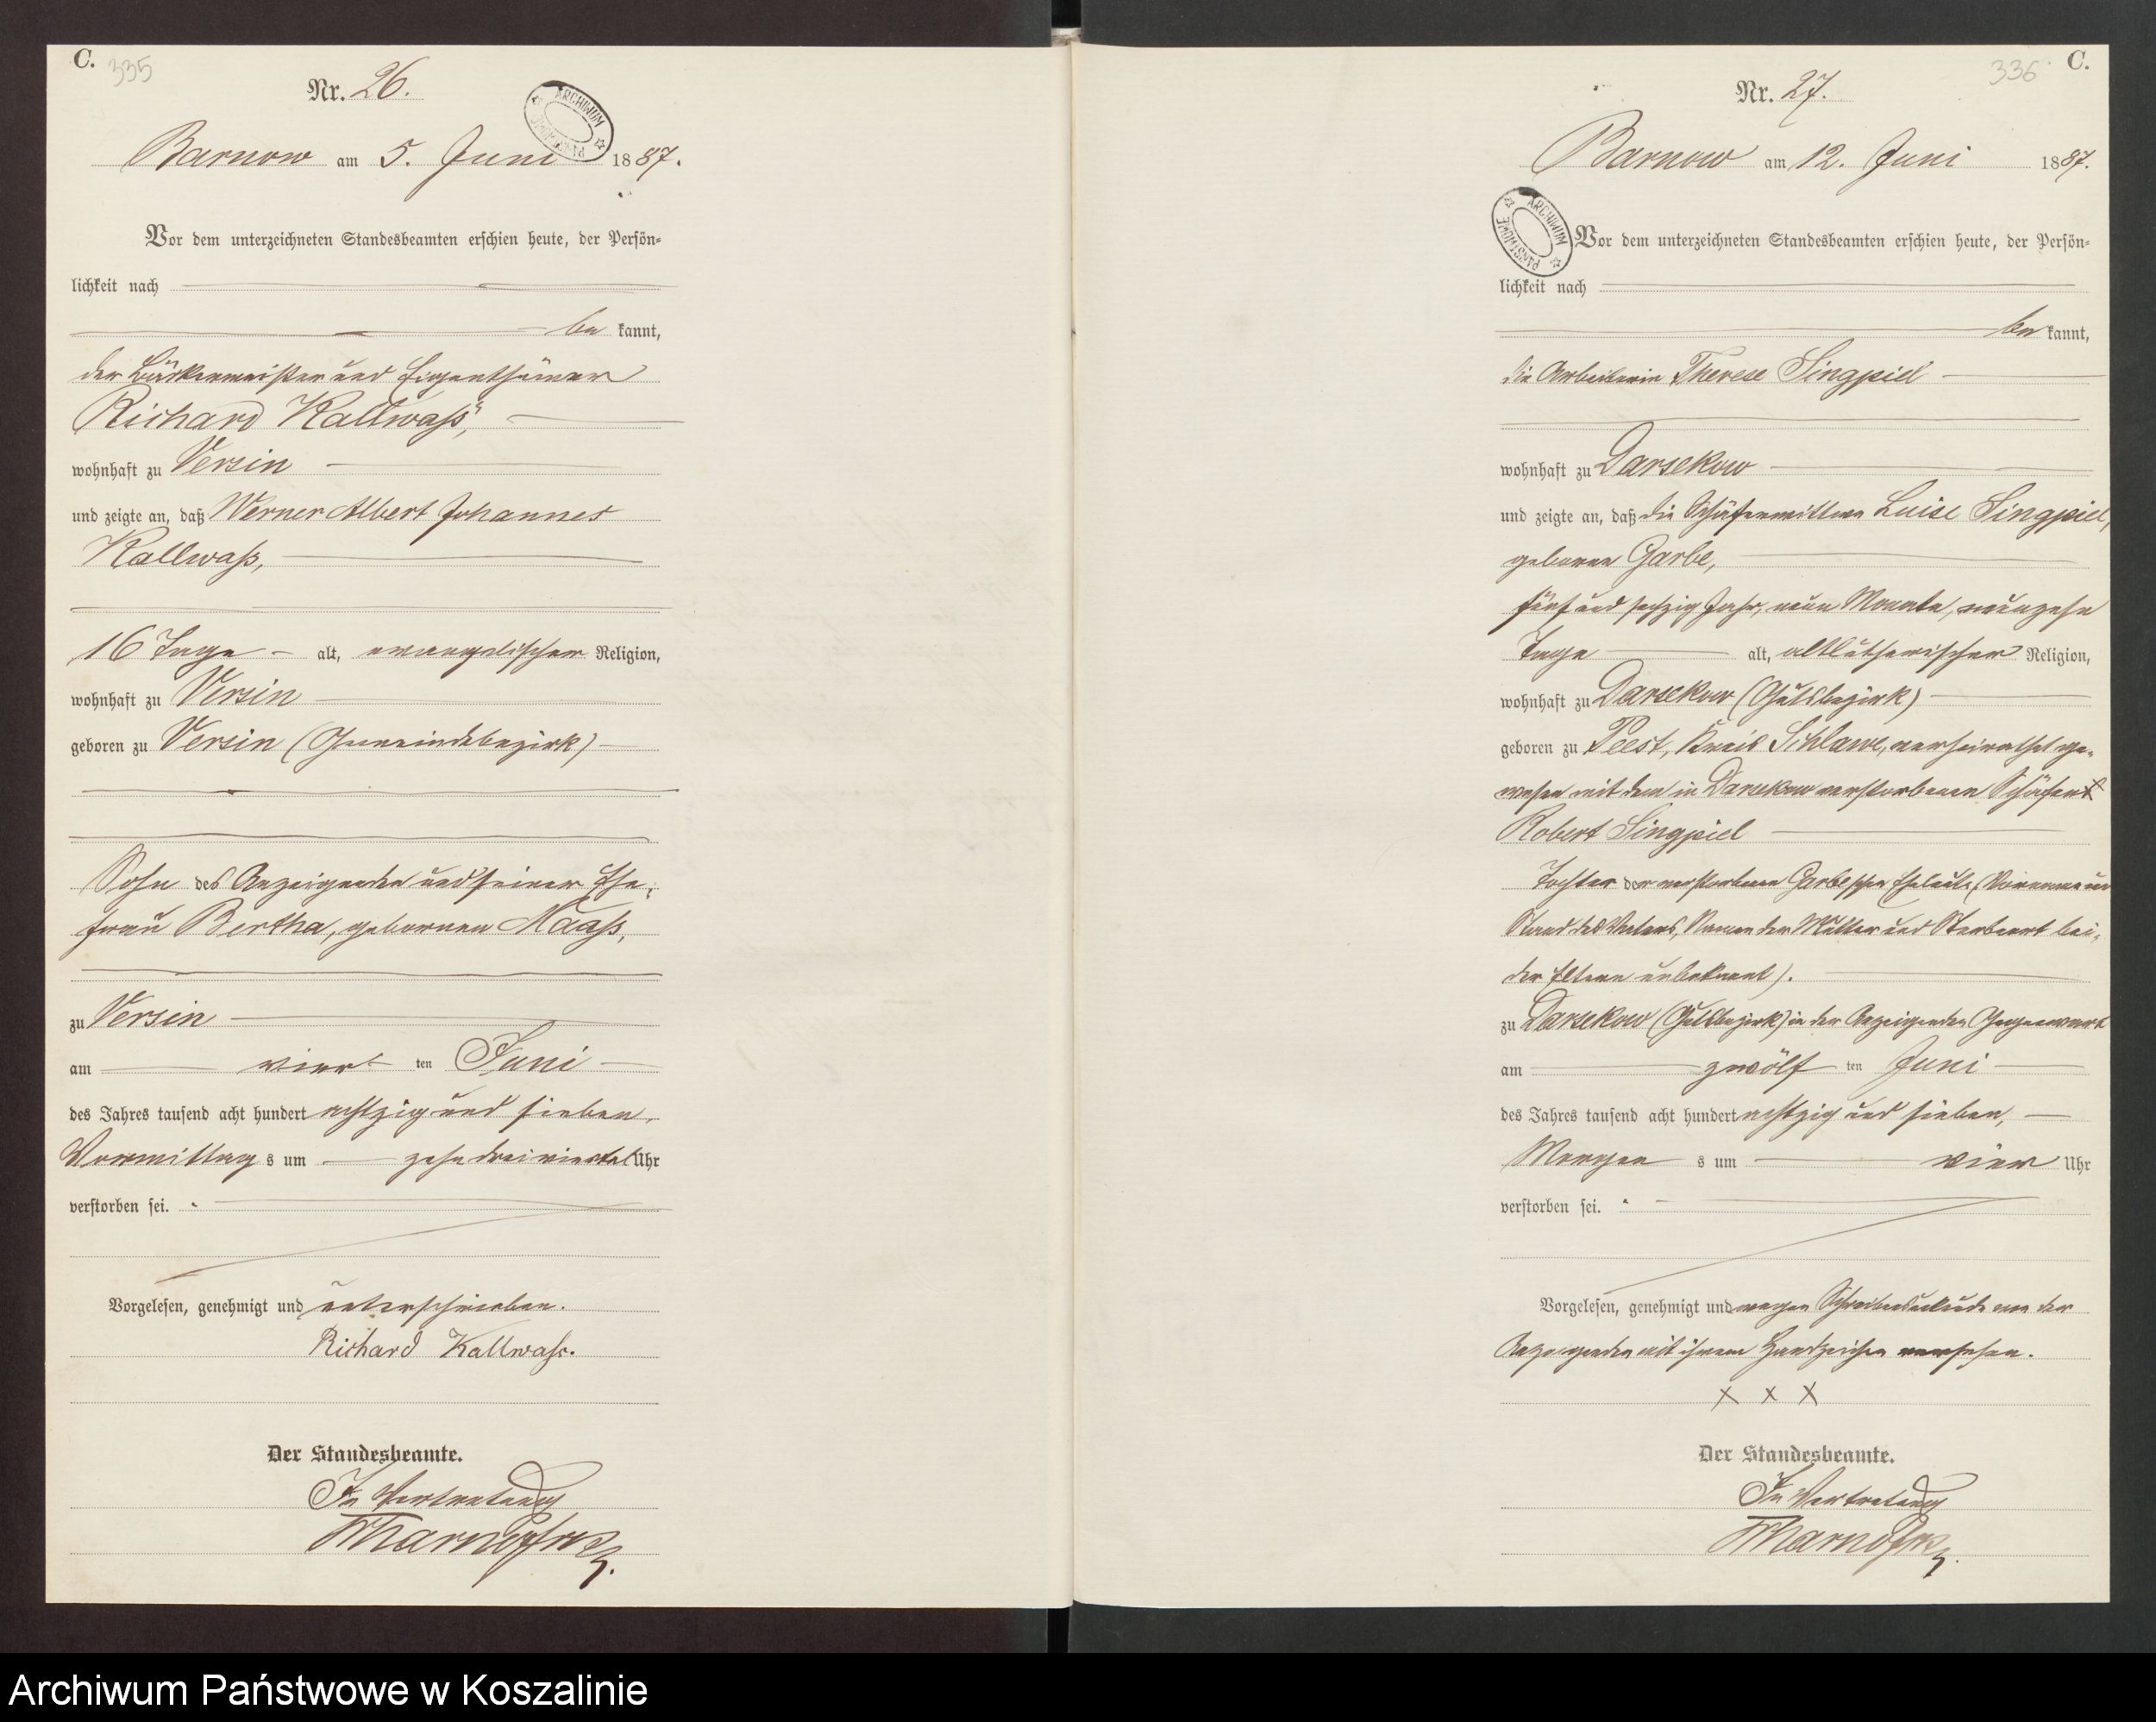 C. 335
Nr. 26.
ARCHIWUM
Barnow am 5. Juni 1887.
Vor dem unterzeichneten Standesbeamten erschien heute, der Persön-
lichkeit nach
be kannt,
der Bäckermeister und Eigenthümer
Richard Kallwaß,
wohnhaft zu Versin
und zeigte an, daß Werner Albert Johannes
Kallwaß,
16 Tage alt, evangelischer Religion,
wohnhaft zu Versin
geboren zu Versin (Gemeindebezirk)
Sohn des Anzeigenden und seiner Ehe-
frau Bertha, geborenen Maaß,
zu Versin
am vier ten Juni
des Jahres tausend acht hundert achtzig und sieben,
Vormittag s um zehn dreiviertel Uhr
verstorben sei.
Vorgelesen, genehmigt und unterschrieben.
Richard Kallwaß.
Der Standesbeamte.
In Vertretung
336 C.
Nr. 27.
Barnow am 12. Juni 1887.
ARCHIWUM PAŃSTWOWE
Vor dem unterzeichneten Standesbeamten erschien heute, der Persön-
lichkeit nach
be kannt,
die Arbeiterin Therese Singpiel
wohnhaft zu Darsekow
und zeigte an, daß die Schäferwittwe Luise Singpiel,
geborene Garbe,
fünf und sechzig Jahr, neun Monate, neunzehn
Tage alt, altlutherischer Religion,
wohnhaft zu Darsekow (Gutsbezirk)
geboren zu Peest, Kreis Schlawe, verheirathet ge-
wesen mit dem in Darsekow verstorbenen Schäfer
Robert Singpiel
Tochter der verstorbenen Garbe'schen Eheleute (Vorname und
Stand des Vaters, Namen der Mutter und Sterbeort bei-
der Eltern unbekannt).
zu Darsekow (Gutsbezirk) in der Anzeigenden Gegenwart
am zwölf ten Juni
des Jahres tausend acht hundert achtzig und sieben,
Morgen s um vier Uhr
verstorben sei.
Vorgelesen, genehmigt und wegen Schreibensunkunde von der
Anzeigenden mit ihrem Handzeichen versehen.
X X X
Der Standesbeamte.
In Vertretung
Archiwum Państwowe w Koszalinie